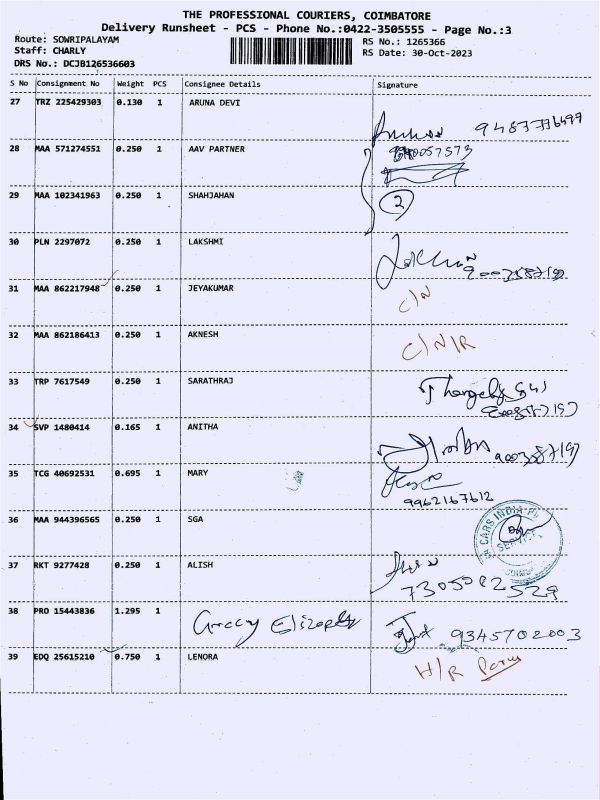 THE PROFESSIONAL COURIERS, COIMBATORE
Delivery Runsheet - PCS - Phone No.:0422-3505555 - Page No.:3
Route: SOWRIPALAYAM RS No.: 1265366
Staff: CHARLY RS Date: 30-Oct-2023
DRS No.: DCJB126536603
S No Consignment No Weight PCS Consignee Details Signature
27 TRZ 225429303 0.130 1 ARUNA DEVI
9487776499
28 MAA 571274551 0.250 1 AAV PARTNER
29 MAA 102341963 0.250 1 SHAHJAHAN 2
30 PLN 2297072 0.250 1 LAKSHMI
31 MAA 862217948 0.250 1 JEYAKUMAR C/N
32 MAA 862186413 0.250 1 AKNESH C/N/R
33 TRP 7617549 0.250 1 SARATHRAJ
34 SVP 1480414 0.165 1 ANITHA
35 TCG 40692531 0.695 1 MARY
9962167612
36 MAA 944396565 0.250 1 SGA CARS INDIA
37 RKT 9277428 0.250 1 ALISH
7305902529
38 PRO 15443836 1.295 1 9345702003
39 EDQ 25615210 0.750 1 LENORA H/R